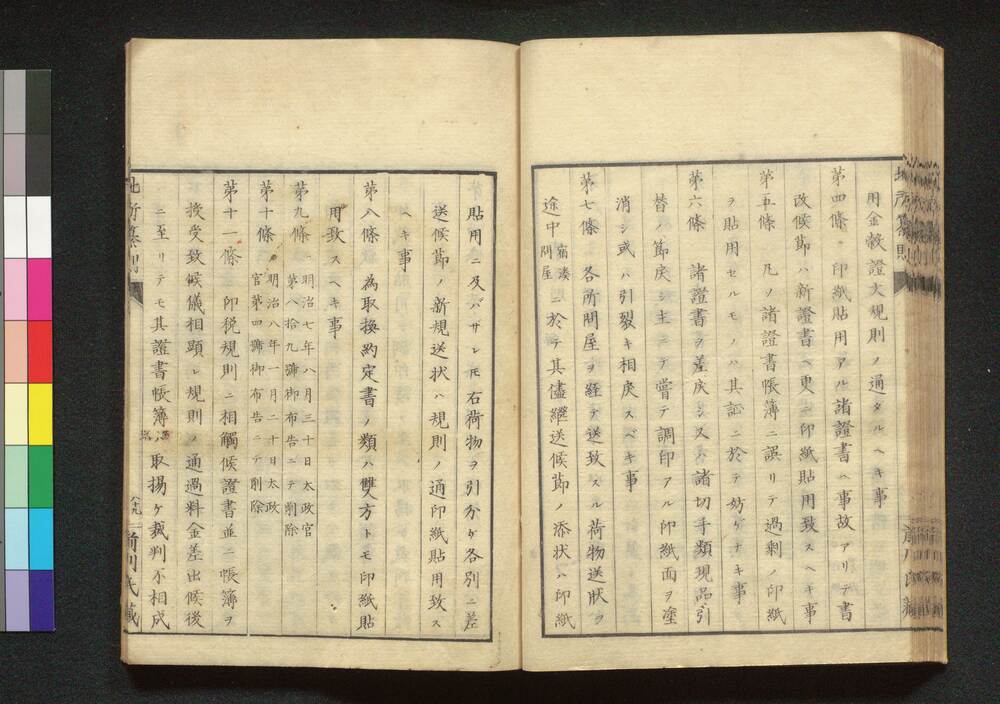 用金穀證文規則ノ通タルヘキ事
第四條 印紙貼用アル諸證書ヘ事故アリテ書
改候節ハ新證書ヘ更ニ印紙貼用致スヘキ事
第五條 凡ソ諸證書帳簿ニ誤リテ過剰ノ印紙
ヲ貼用セルモノハ其訟ニ於テ妨ケナキ事
第六條 諸證書ヲ差戻シ又ハ諸切手類現品引
替ノ節戻シ主ニテ嘗テ調印アル印紙面ヲ塗
消シ或ハ引裂キ相戻スベキ事
第七條 各所問屋ヲ経テ送致スル荷物送状ヲ
途中
宿湊
問屋
ニ於テ其儘継送候節ノ添状ハ印紙
貼用ニ及バザレ𪜈右荷物ヲ引分ケ各別ニ差
送候節ノ新規送状ハ規則ノ通印紙貼用致ス
ヘキ事
第八條 為取換約定書ノ類ハ雙方トモ印紙貼
用致スヘキ事
第九條 明治七年八月三十日太政官
第八拾九號御布告ニテ削除
第十條 明治八年一月二十日太政
官第四號御布告ニテ削除
第十一條 印税規則ニ相觸候證書並ニ帳簿ヲ
授受致候儀相顕レ規則ノ通過料金差出候後
ニ至リテモ其證書帳簿ハ取揚ケ裁判不相成
地所纂則
前川氏藏